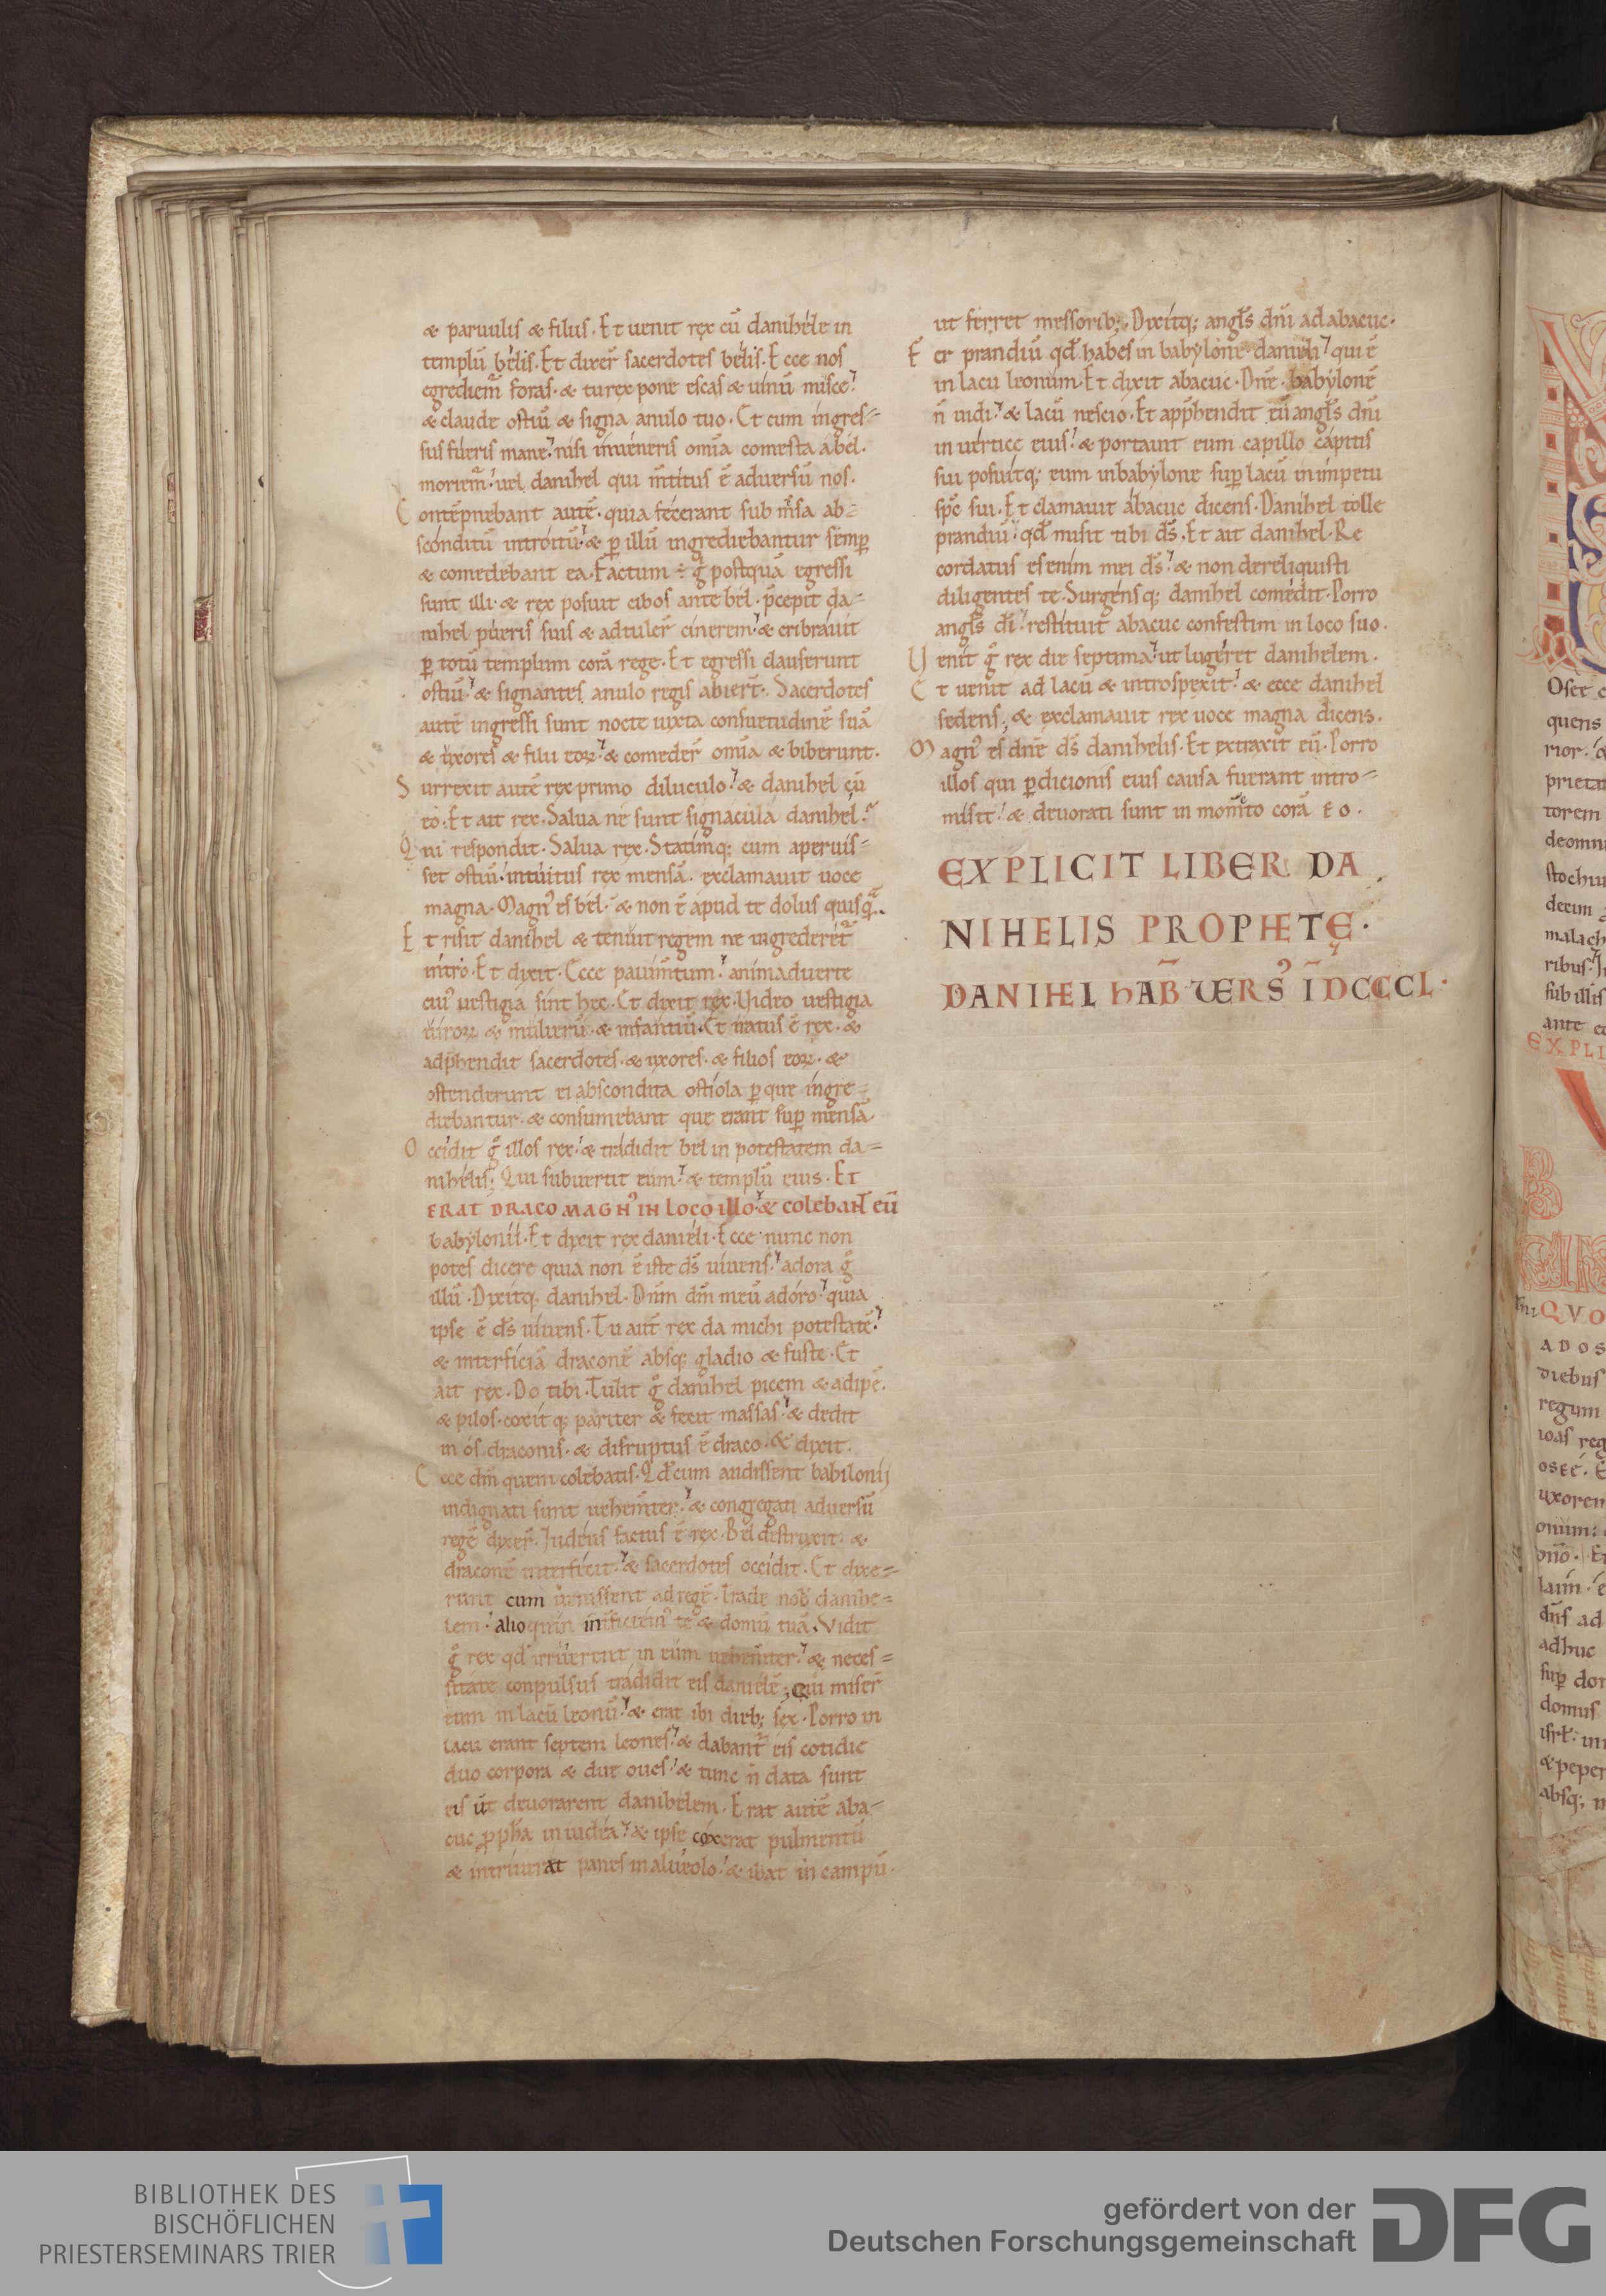 & paruulis & filiis. Et uenit rex cū danihéle in
templū bélis. Et dixer̄ sacerdotes bélis. Ecce nos
egrediem̄ foras. & tu rex pone escas & uinū misce.
& claude ostiū & signa anulo tuo. Et cum ingres=
sus fúeris mane. nisi inuéneris om̄ia comesta a bel.
moriem̄. uel danihel qui m̄titus ē aduersū nos.
Contēpnebant autē. quia fécerant sub m̄sa ab=
sconditū introitū. & p̱ illū ingrediebantur semp̱
& comedebant ea. Factum ÷ g̊ postquā egressi
sunt illi. & rex posuit cibos ante bel. p̄cepit da=
nihel púeris suis & adtuler̄ cinerem. & cribráuit
p̱ totū templum corā rege. Et egressi clauserunt
ostiū. & signantes anulo regis abier̄t. Sacerdotes
autē ingressi sunt nocte iuxta consuetudinē suā
& uxores & filii eoꝝ. & comeder̄ om̄ia & biberunt.
Surrexit autē rex primo diluculo. & danihel cū
eo. Et ait rex. Salua ne sunt signacula danihel.
Qui respondit. Salua rex. Statimq; cum aperuis=
set ostiū. intúitus rex mensā. exclamauit uoce
magna. Magn᾽ es bel. & non ē apud te dolus quisq̄.
Et risit danihel & tenuit regem ne ingrederet̄
intro. Et dixit. Ecce pauim̄tum. animaduerte
cui᾽ uestigia sint hec. Et dixit rex. Uideo uestigia
uiroꝝ & mulierū. & infantiū. Et iratus ē rex. &
adp̄hendit sacerdotes. & uxores. & filios eoꝝ. &
ostenderunt ei abscondita ostíola p̱ que ingre=
diebantur. & consumebant que erant sup̱ mensā.
Occidit g̊ illos rex. & trádidit bel in potestatem da=
nihélis; Qui subuertit eum. & templū eius. Et
ERAT DRACO MAGN᾽ IN LOCO illo. & colebant eū
babylonii. Et dixit rex daniéli. Ecce nunc non
potes dicere quia non ē iste d̄s uiuens. adora g̊
illū. Dixitq; danihel. Dn̄m dm̄ meū adóro. quia
ipse ē d̄s uiuens. Tu aut̄ rex da michi potestatē.
& interficiā draconē absq; gladio & fuste. Et
ait rex. Do tibi. Tulit g̊ danihel picem & adipē.
& pilos. coxitq; pariter & fecit massas. & dedit
in os draconis. & disruptus ē draco. & dixit.
Ecce dm̄ quem colebatis. Qd̄ cum audissent babilonij
indignati sunt uehem̄ter. & congregati aduersū
regē dixer̄. Iudeus factus ē rex. Bel distruxit. &
draconē interfécit. & sacerdotes occidit. Et dixe=
runt cum uenissent ad regē. Trade nob̄ danihe=
lem. alioquin int̄ficiem᾽ te & domū tuā. Vidit
g̊ rex qd̄ irrúerent in eum uehem̄ter. & neces=
sitate conpulsus trádidit eis daniélē; qui miser̄
eum in lacū leonū. & erat ibi dieb; sex. Porro in
lacu erant septem leones. & dabant̄ eis cotidie
duo corpora & due oues. & tunc n̄ data sunt
eis ut deuorarent danihelem. Erat autē aba=
cuc p̱ph̄a in iudéa. & ipse coxerat pulmentū
& intriuerat panes in aluéolo. & ibat in campū.
ut ferret messorib;. Dixitq; angl̄s dn̄i ad abacuc.
Fer prandiū qd̄ habes in babylonē daniheli qui ē
in lacu leonum. Et dixit abacuc. Dn̄e. babylonē
n̄ uidi. & lacū nescio. Et app̄hendit eū angl̄s dn̄i
in uértice eius. & portauit eum capillo cápitis
sui posuitq; eum in babylone sup̱ lacū in ímpetu
sp̄c sui. Et clamauit ábacuc dicens. Danihel tolle
prandiū qd̄ misit tibi d̄s. Et ait danihel. Re
cordatus es enim mei d̄s. & non dereliquisti
diligentes te. Surgensq; danihel comédit. Porro
angl̄s dī restituit abacuc confestim in loco suo.
Uenit g̊ rex die septima. ut lugéret danihelem.
Et uenit ad lacū & introspexit. & ecce danihel
sedens; & exclamauit rex uoce magna dicens.
Magn᾽ es dn̄e d̄s danihelis. Et extraxit eū. Porro
illos qui p̱dicionis eius causa fuerant intro=
misit. & deuorati sunt in mom̄to corā eo.
EXPLICIT LIBER DA
NIHELIS PROPHETĘ.
DANIHEL HAB̄ VERS᾽ ĪDCCCL.
BIBLIOTHEK DES
BISCHÖFLICHEN
PRIESTERSEMINARS TRIER
gefördert von der
Deutschen Forschungsgemeinschaft
DFG